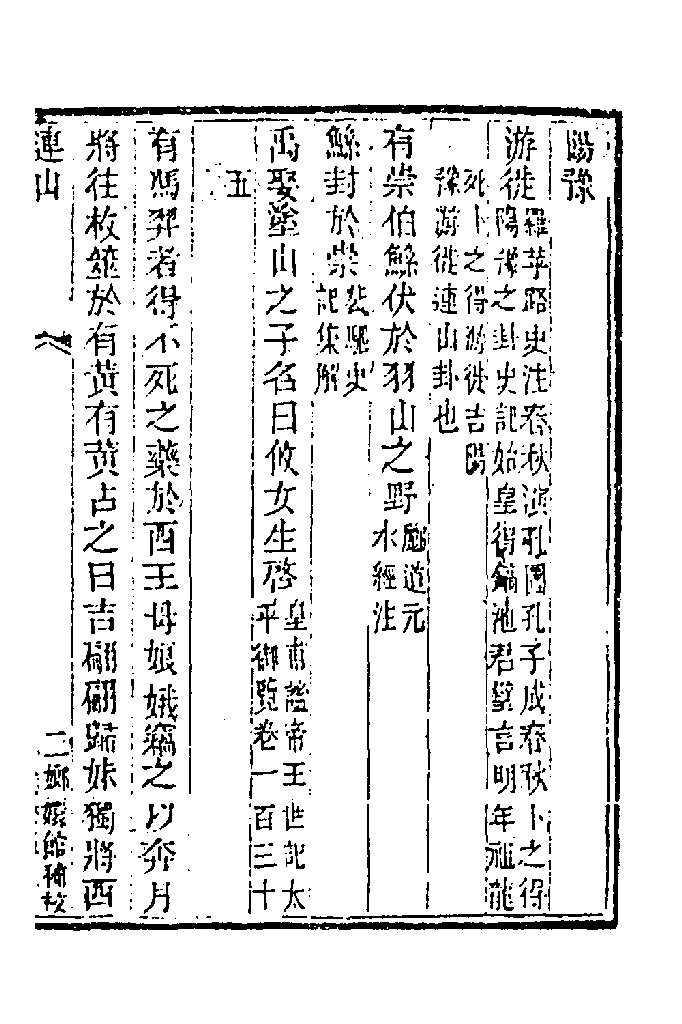 陽豫
游徙羅苹路史注春秋演孔圖孔子成春秋卜之得
陽豫之卦史記始皇得鎬池君璧言明年祖龍
死卜之得游徙吉陽
豫游徙連山卦也
有崇伯鯀伏於羽山之野酈道元
水經注
鯀封於崇裴駰史
記集解
禹娶塗山之子名曰攸女生啓皇甫謐帝王世記太
平御覽卷一百三十
五
有馮羿者得不死之藥於西王母娘娥竊之以奔月
將往枚筮於有黃有黃占之曰吉翩翩歸妹獨將西
連山
二嫏嬛館補校